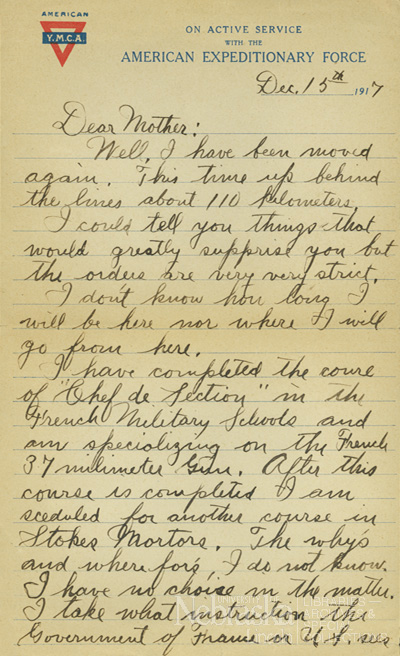 AMERICAN
Y.M.C.A.
ON ACTIVE SERVICE
WITH THE
AMERICAN EXPEDITIONARY FORCE
Dec. 15th 1917
Dear Mother:
Well, I have been moved
again. This time up behind
the lines about 110 kilometers.
I could tell you things that
would greatly supprise you but
the orders are very very strict.
I don't know how long I
will be here nor where I will
go from here.
I have completed the coure
of "Chef de Section" in the
French Military Schools and
am specializing on the French
37 milimeter Gun. After this
course is completed I am
sceduled for another course in
Stokes Mortors. The whys
and where forg, I do not know.
I have no choise in the matter.
I take what instruction the
Government of France or U.S. sees